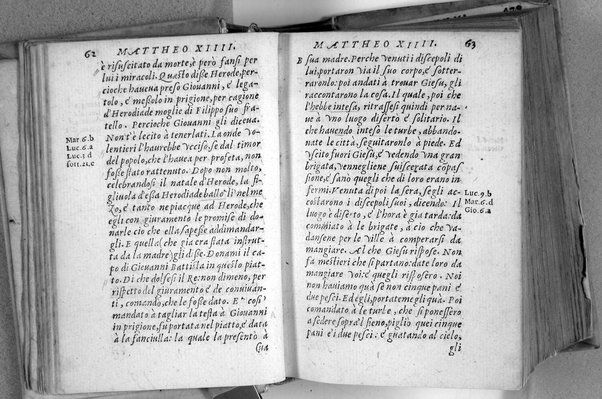 62
MATTHEO XIIII.
è risuscitato da morte, è però fansi per
lui i miracoli. Questo disse Herode, per-
cioche haueua preso Giouanni, è lega-
tolo, è messolo in prigione, per cagione
d'Herodiade moglie di Filippo suo fra-
tello. Percioche Giouanni gli diceua.
Mar. 6.b
Luc. 6.a
Luc. 3.d
Non t'è lecito à tenerlati. La onde vo-
lentieri l'haurebbe vcciso, se dal timor
del popolo, che l'hauea per profeta, non
fosse stato rattenuto. Dopo non molto,
celebrandosi il natale d'Herode, la fi-
gliuola d'essa Herodiade ballò lì nel me
zo, è tanto ne piacque ad Herode, che
egli con giuramento le promise di do-
narle ciò che ella sapesse addimandar-
gli. E quella (che gia era stata instrut-
ta da la madre) gli disse. Donami il ca-
po di Giouanni Battista in questo piat-
to. Di che dolsesi il Re: non dimeno, per
rispetto del giuramento è de conuiuan-
ti, comandò, che le fosse dato. E' cosi
mandato à tagliar la testa à Giouanni
in prigione, fu portata nel piatto, è data
à la fanciulla: la quale la presentò à
sua
MATTHEO XIIII.
63
B sua madre. Perche venuti i discepoli di
lui, portaron via il suo corpo, è sotter-
raronlo: poi andati à trouar Giesu, gli
raccontarono la cosa. Il quale, poi che
l'hebbe intesa, ritrassesi quindi per na-
ue à vno luogo diserto è solitario. Il
che hauendo inteso le turbe, abbando-
nate le città, seguitaronlo à piede. Ed
vscito fuori Giesu, è vedendo vna gran
brigata, vennegliene suiscerata compas
sione, è sanò quegli che di loro erano in
fermi. Venuta dipoi la sera, segli ac-
costarono i discepoli suoi, dicendo: Il
luogo è diserto, è l'hora è gia tarda: da
commiato à le brigate, à cio che va-
dansene per le ville à comperarsi da
mangiare. Al che Giesu rispose. Non
fa mestieri che si partano: date loro da
mangiare voi: è quegli risposero. Noi
non habbiamo quà se non cinque pani è
due pesci. Ed egli, portatemegli quà. Poi
comandato à le turbe, che si ponessero
à sedere sopra'l fieno, pigliò quei cinque
pani è i due pesci: è guatando al cielo,
gli
Luc. 9.b
Mar. 6.d
Gio. 6.a